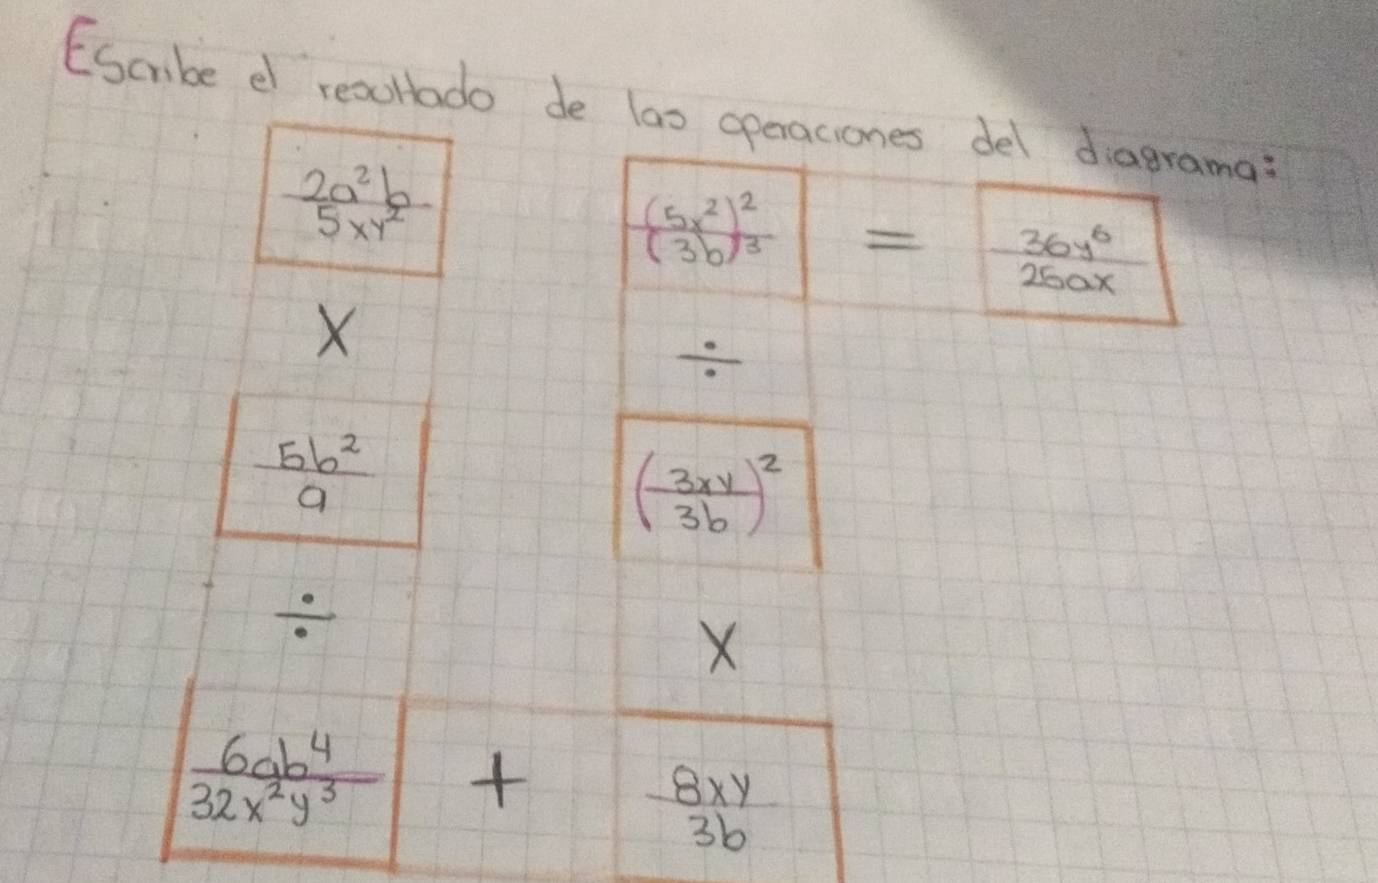 Escribe el resultado de las operaciones del diagrama:
2a²b / 5xy²
(5x²)² / (3b)³ = 36y⁶ / 25ax
×
÷
5b² / a
(3xy / 3b)²
÷
×
6ab⁴ / 32x²y³ + 8xy / 3b